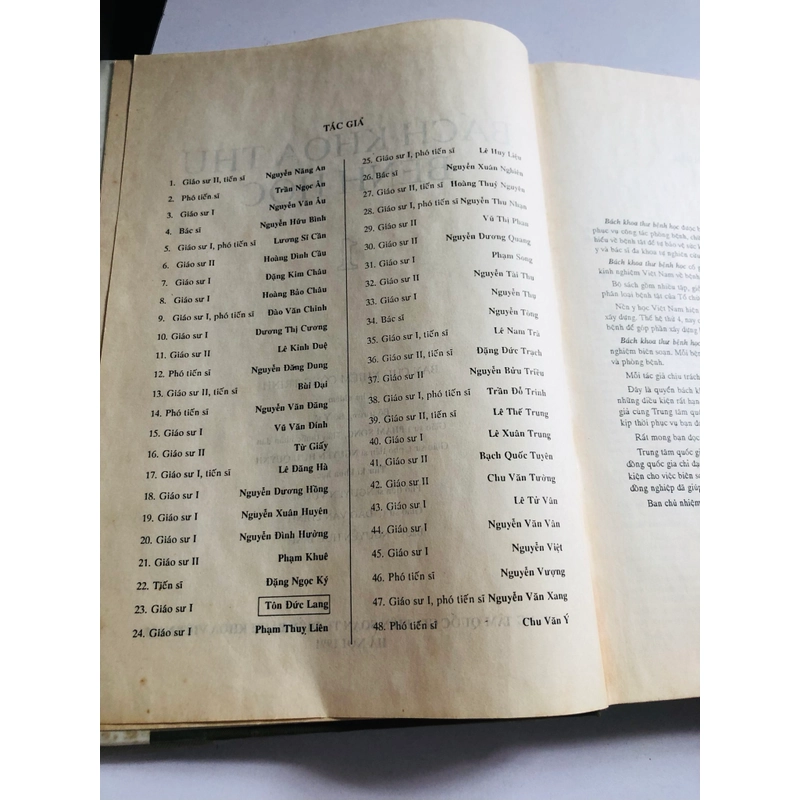 TÁC GIẢ
1. Giáo sư II, tiến sĩ Nguyễn Năng An
2. Phó tiến sĩ Trần Ngọc Ân
3. Giáo sư I Nguyễn Văn Âu
4. Bác sĩ Nguyễn Hữu Bình
5. Giáo sư I, phó tiến sĩ Lương Sĩ Cần
6. Giáo sư II Hoàng Đình Cầu
7. Giáo sư I Đặng Kim Châu
8. Giáo sư I Hoàng Bảo Châu
9. Giáo sư I, phó tiến sĩ Đào Văn Chinh
10. Giáo sư I Dương Thị Cương
11. Giáo sư II Lê Kinh Duệ
12. Phó tiến sĩ Nguyễn Đăng Dung
13. Giáo sư II, tiến sĩ Bùi Đại
14. Phó tiến sĩ Nguyễn Văn Đăng
15. Giáo sư I Vũ Văn Đính
16. Giáo sư II Từ Giấy
17. Giáo sư I, tiến sĩ Lê Đăng Hà
18. Giáo sư I Nguyễn Dương Hồng
19. Giáo sư I Nguyễn Xuân Huyên
20. Giáo sư I Nguyễn Đình Hường
21. Giáo sư II Phạm Khuê
22. Tiến sĩ Đặng Ngọc Ký
23. Giáo sư I Tôn Đức Lang
24. Giáo sư I Phạm Thuỵ Liên
25. Giáo sư I, phó tiến sĩ Lê Huy Liệu
26. Bác sĩ Nguyễn Xuân Nghiên
27. Giáo sư II, tiến sĩ Hoàng Thuỷ Nguyên
28. Giáo sư I, phó tiến sĩ Nguyễn Thu Nhạn
29. Giáo sư II Vũ Thị Phan
30. Giáo sư II Nguyễn Dương Quang
31. Giáo sư I Phạm Song
32. Giáo sư II Nguyễn Tài Thu
33. Giáo sư I Nguyễn Thụ
34. Bác sĩ Nguyễn Tòng
35. Giáo sư I, tiến sĩ Lê Nam Trà
36. Giáo sư II, tiến sĩ Đặng Đức Trạch
37. Giáo sư II Nguyễn Bửu Triều
38. Giáo sư I, phó tiến sĩ Trần Đỗ Trinh
39. Giáo sư II, tiến sĩ Lê Thế Trung
40. Giáo sư I Lê Xuân Trung
41. Giáo sư II Bạch Quốc Tuyên
42. Giáo sư II Chu Văn Tường
43. Giáo sư I Lê Tử Vân
44. Giáo sư I Nguyễn Văn Vân
45. Giáo sư I Nguyễn Việt
46. Phó tiến sĩ Nguyễn Vượng
47. Giáo sư I, phó tiến sĩ Nguyễn Văn Xang
48. Phó tiến sĩ Chu Văn Ý
Bách khoa thư bệnh học được
phục vụ công tác phòng bệnh, ch
hiểu về bệnh tật để tự bảo vệ sức
y và bác sĩ đa khoa tự nghiên cứu
Bách khoa thư bệnh học cố
kinh nghiệm Việt Nam về bệnh
Bộ sách gồm nhiều tập,
phân loại bệnh tật của Tổ ch
Nền y học Việt Nam hiện
xây dựng. Thế hệ thứ 4, nay
bệnh để góp phần xây dựng
Bách khoa thư bệnh học
nghiệm biên soạn. Mỗi bệnh
và phòng bệnh.
Mỗi tác giả chịu trách
Đây là quyển bách kh
những điều kiện rất hạn
giả cùng Trung tâm quốc
kịp thời phục vụ bạn đọ
Rất mong bạn đọc
Trung tâm quốc gi
đồng quốc gia chỉ đạ
kiện cho việc biên so
đồng nghiệp đã giúp
Ban chủ nhiệm